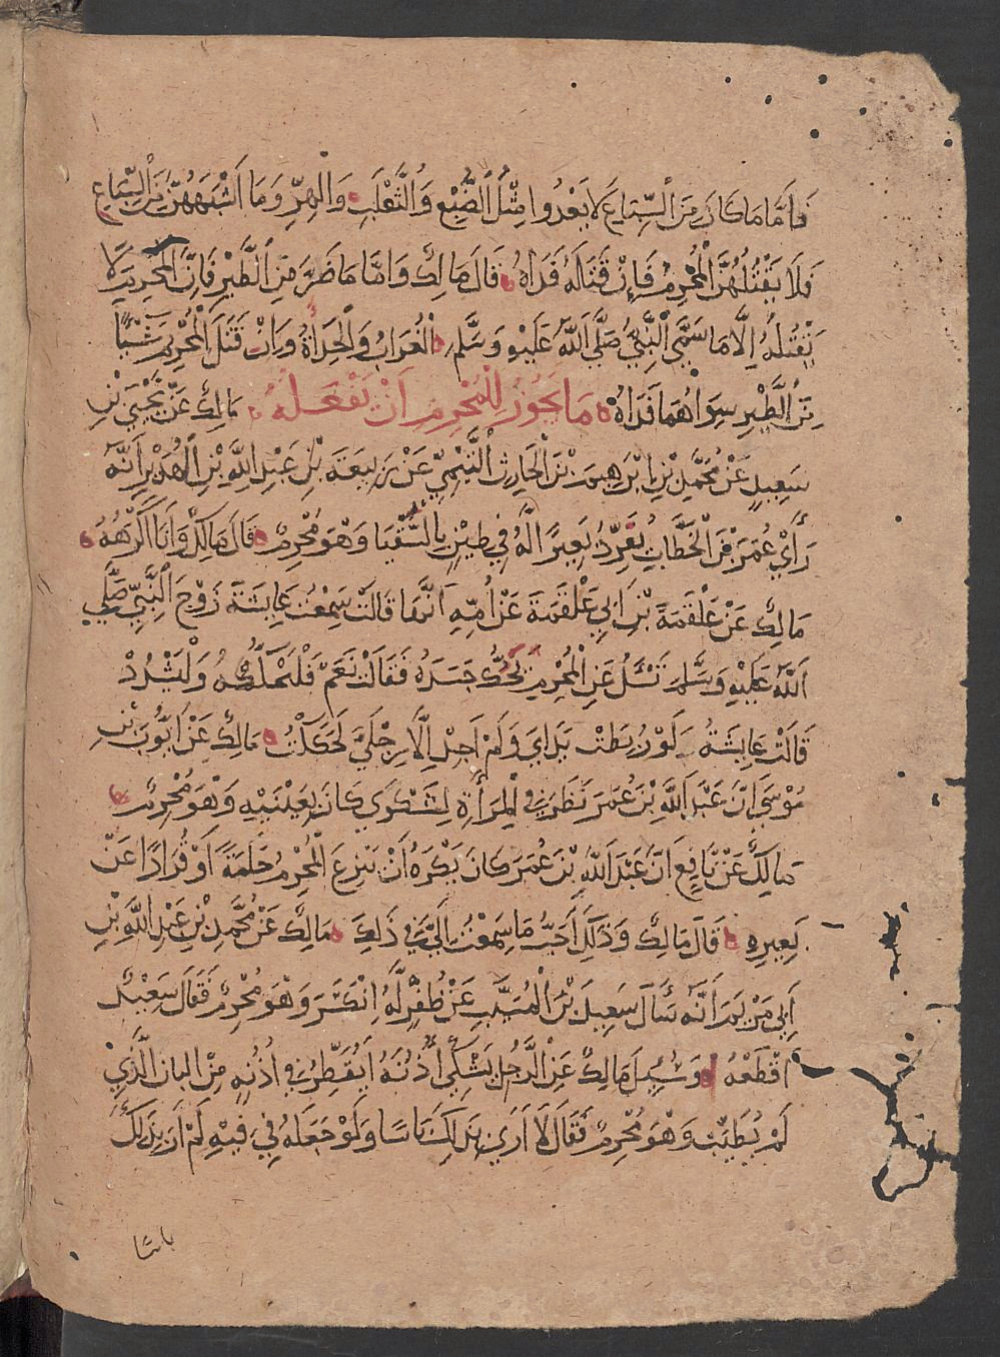 فَأَمَّا مَا كَانَ مِنَ السِّبَاعِ لَا يَعْدُوا مِثْلُ الضَّبُعِ وَالثَّعْلَبِ وَالْهِرِّ وَمَا أَشْبَهَهُنَّ مِنَ السِّبَاعِ
فَلَا يَقْتُلُهُنَّ الْمُحْرِمُ فَإِنْ قَتَلَهُ فَدَاهُ قَالَ مَالِكٌ وَأَمَّا مَا ضَرَّ مِنَ الطَّيْرِ فَإِنَّ الْمُحْرِمَ لَا
يَقْتُلُهُ إِلَّا مَا سَمَّى النَّبِيُّ صَلَّى اللَّهُ عَلَيْهِ وَسَلَّمَ الْغُرَابُ وَالْحِدَأَةُ وَإِنْ قَتَلَ الْمُحْرِمُ شَيْئًا
مِنَ الطَّيْرِ سِوَاهُمَا فَدَاهُ مَا يَجُوزُ لِلْمُحْرِمِ أَنْ يَفْعَلَهُ مَالِكٌ عَنْ يَحْيَى بْنِ
سَعِيدٍ عَنْ مُحَمَّدِ بْنِ إِبْرَهِيمَ بْنِ الْحَارِثِ التَّيْمِيِّ عَنْ رَبِيعَةَ بْنِ عَبْدِ اللَّهِ بْنِ الْهُدَيْرِ أَنَّهُ
رَأَى عُمَرَ بْنَ الْخَطَّابِ يُقَرِّدُ بَعِيرًا لَهُ فِي طِينٍ بِالسُّقْيَا وَهُوَ مُحْرِمٌ قَالَ مَالِكٌ وَأَنَا أَكْرَهُهُ
مَالِكٌ عَنْ عَلْقَمَةَ بْنِ أَبِي عَلْقَمَةَ عَنْ أُمِّهِ أَنَّهَا قَالَتْ سَمِعْتُ عَايِشَةَ زَوْجَ النَّبِيِّ صَلَّى
اللَّهُ عَلَيْهِ وَسَلَّمَ تُسْئَلُ عَنِ الْمُحْرِمِ يَحُكُّ جَسَدَهُ فَقَالَتْ نَعَمْ فَلْيَحْكُكْهُ وَلْيَشْدُدْ
قَالَتْ عَايِشَةُ وَلَوْ رُبِطَتْ يَدَايَ وَلَمْ أَجِدْ إِلَّا رِجْلَيَّ لَحَكَكْتُ مَالِكٌ عَنْ أَيُّوبَ بْنِ
مُوسَى أَنَّ عَبْدَ اللَّهِ بْنَ عُمَرَ نَظَرَ فِي الْمِرْأَةِ لِشَكْوَى كَانَ بِعَيْنَيْهِ وَهُوَ مُحْرِمٌ
مَالِكٌ عَنْ نَافِعٍ أَنَّ عَبْدَ اللَّهِ بْنَ عُمَرَ كَانَ يَكْرَهُ أَنْ يَنْزِعَ الْمُحْرِمُ حَلَمَةً أَوْ قُرَادًا عَنْ
بَعِيرِهِ قَالَ مَالِكٌ وَذَلِكَ أَحَبُّ مَا سَمِعْتُ إِلَيَّ فِي ذَلِكَ مَالِكٌ عَنْ مُحَمَّدِ بْنِ عَبْدِ اللَّهِ بْنِ
أَبِي مَرْيَمَ أَنَّهُ سَأَلَ سَعِيدَ بْنَ الْمُسَيَّبِ عَنْ ظُفْرٍ لَهُ انْكَسَرَ وَهُوَ مُحْرِمٌ فَقَالَ سَعِيدٌ
اقْطَعْهُ وَسُئِلَ مَالِكٌ عَنِ الرَّجُلِ يَشْتَكِي أُذُنَهُ أَيُقَطِّرُ فِي أُذُنِهِ مِنَ الْبَانِ الَّذِي
لَمْ يُطَيَّبْ وَهُوَ مُحْرِمٌ فَقَالَ لَا أَرَى بِذَلِكَ بَاسًا وَلَوْ جَعَلَهُ فِي فِيهِ لَمْ أَرَ بِذَلِكَ
باسا